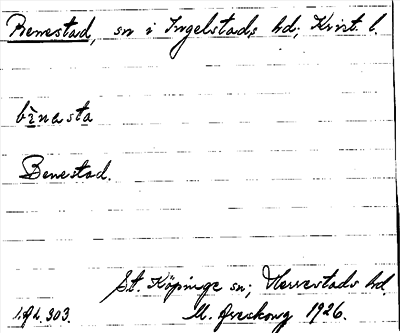 Benestad, sn i Ingelstads hd; Krist. l.
bìnasta
Benestad.
St. Köpinge sn; Herrestads hd.
M. Areskoug 1926.